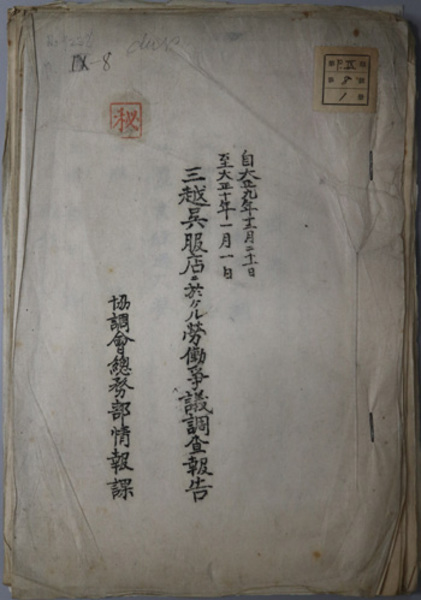 IX-8
秘
自大正九年十二月二十一日
至大正十年一月一日
三越呉服店ニ於ケル労働争議調査報告
協調會總務部情報課